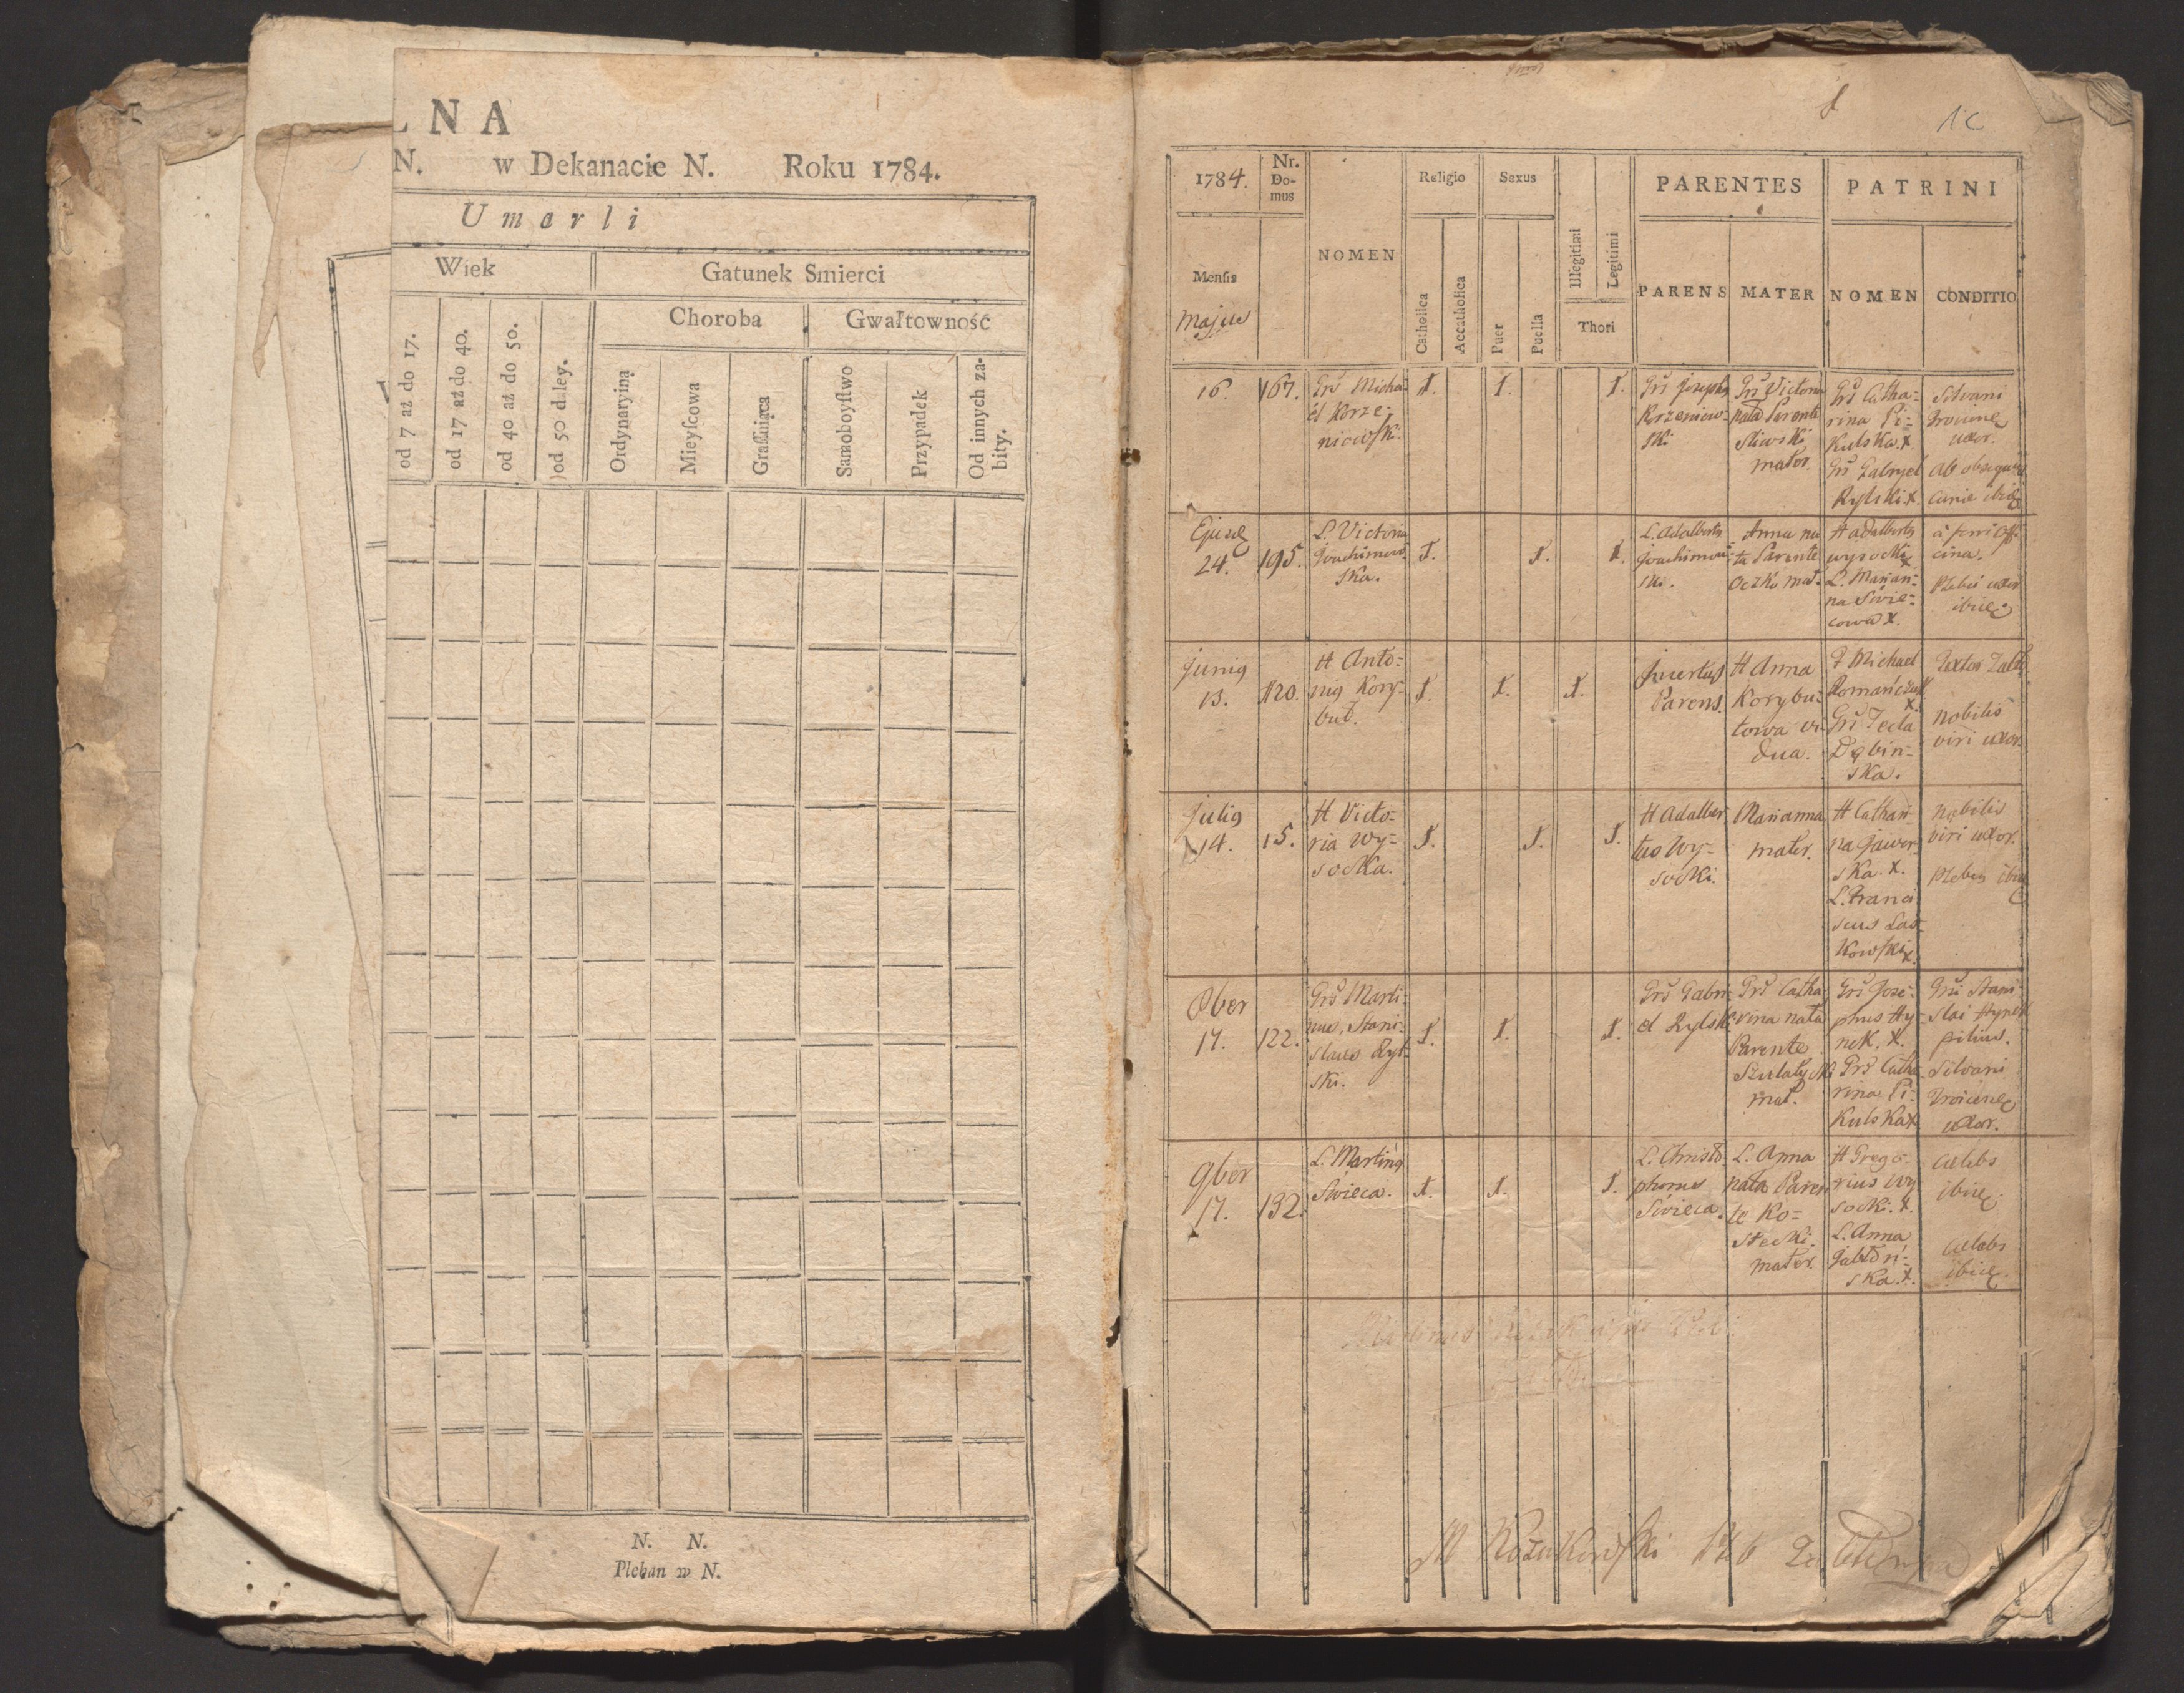 NA
N. w Dekanacie N. Roku 1784.
Umarli
Wiek
Gatunek Smierci
Choroba
Gwałtowność
od 7 aż do 17.
od 17 aż do 40.
od 40 aż do 50.
od 50 daley.
Ordynaryiną
Mieyſcowa
Graſſuiąca
Samoboyſtwo
Przypadek
Od innych za-
bity.
N. N.
Pleban w N.
1784.
Nr.
Do-
mus
Religio
Sexus
PARENTES
PATRINI
Menſis
Majus
NOMEN
Catholica
Accatholica
Puer
Puella
Illegitimi
Legitimi
Thori
PARENS
MATER
NOMEN
CONDITIO
16.
167.
Grs Micha-
el Korze-
niowſki.
1.
1.
1.
Grs Josephg
Korzeniow-
ski
Grs Victoria
nata Parente
Sliwski
mater.
Grs Catha-
rina Pi-
kulska. X
Grs Gabryel
Rylski X
Silvani
uxor.
24.
195.
L. Victoria
Joachimow-
ska.
1.
1.
1.
L. Adalbertg
Joachimow-
ski.
Anna na-
ta Parente
Oczko mat.
H Adalbertg
Wysocki X
L. Marian-
na Swie-
cowa X.
cina.
Plebei uxor
Junig
13.
120.
H Anto-
nig Kory-
but.
1.
1.
1.
Incertus
Parens.
H Anna
Korybu-
towa vi-
dua.
Michael
Romańczuk
X.
Grs Tecla
Dąbin-
ska.
Textor
nobilis
viri uxor.
Julig
14.
15.
H Victo-
ria Wy-
socka.
1.
1.
1.
H Adalber-
tus Wy-
socki.
Marianna
mater.
H Cathari-
na Jawor-
ska. X.
L. Franci-
scus Las-
kowſki X.
Nobilis
viri uxor.
8ber
17.
122.
Grs Marti-
nus, Stani-
slaus Ryl-
ski.
1.
1.
1.
Grs Gabri-
el Rylski
Grs Catha-
rina nata
Parente
mat.
Grs Jose-
phus Hy-
nek. X.
Grs Catha-
rina Pi-
kulska X
Grsi Stani-
slai Hynek
filius.
Silvani
uxor.
9ber
17.
132.
L. Marting
Swieca.
1.
1.
1.
L. Christo-
phorus
Swieca.
L. Anna
nata Paren-
te Ko-
stecki.
mater.
H Grego-
rius Wy-
socki. X.
L. Anna
Jabłoń-
ska. X.
Caelebs
ibid.
Caelebs
ibid.
M Kożuchowſki